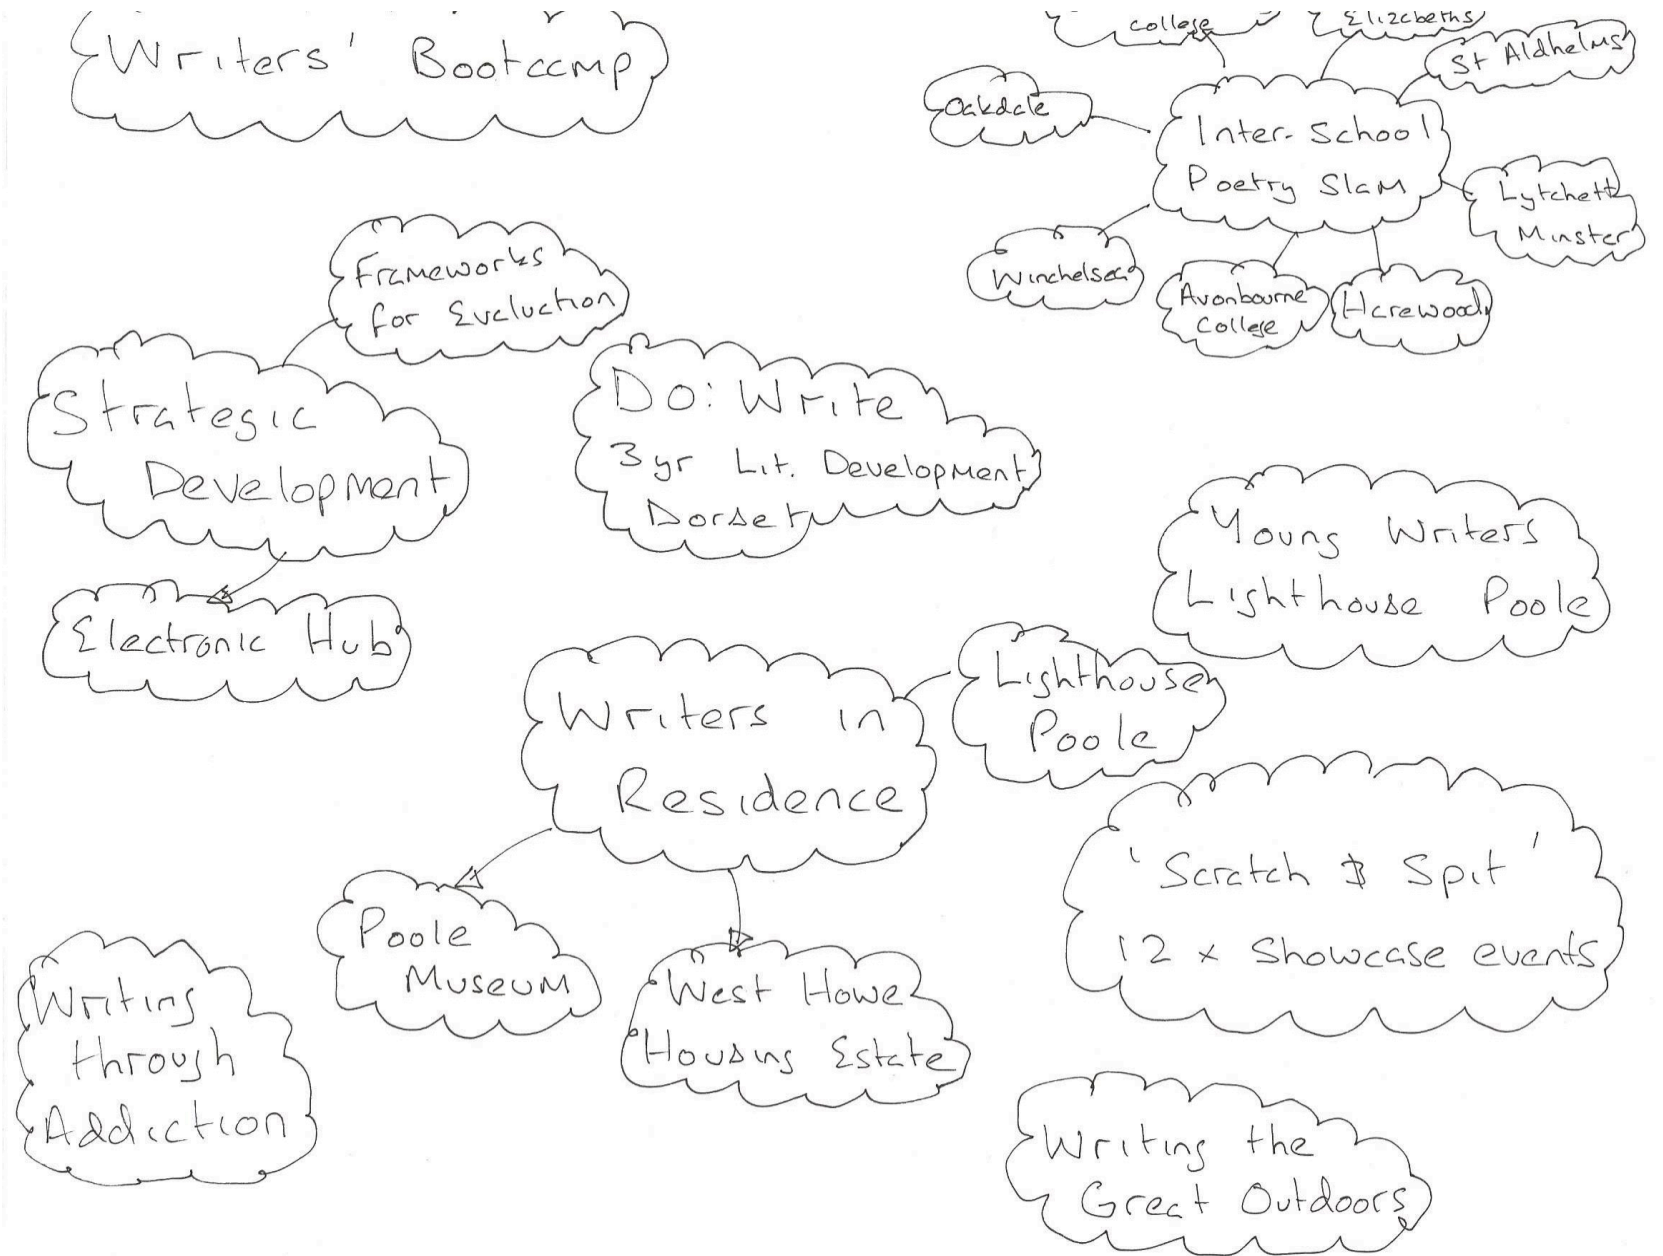 Writers' Bootcamp
College
Elizabeths
St Aldhelms
Oakdale
Inter-School
Poetry Slam
Lytchett
Minster
Winchelsea
Avonbourne
College
Harewood
Frameworks
for Evaluation
Strategic
Development
Electronic Hub
Do: Write
3yr Lit. Development
Dorset
Young Writers
Lighthouse Poole
Writers in
Residence
Lighthouse
Poole
Poole
Museum
West Howe
Housing Estate
'Scratch & Spit'
12 x Showcase events
Writing
through
Addiction
Writing the
Great Outdoors